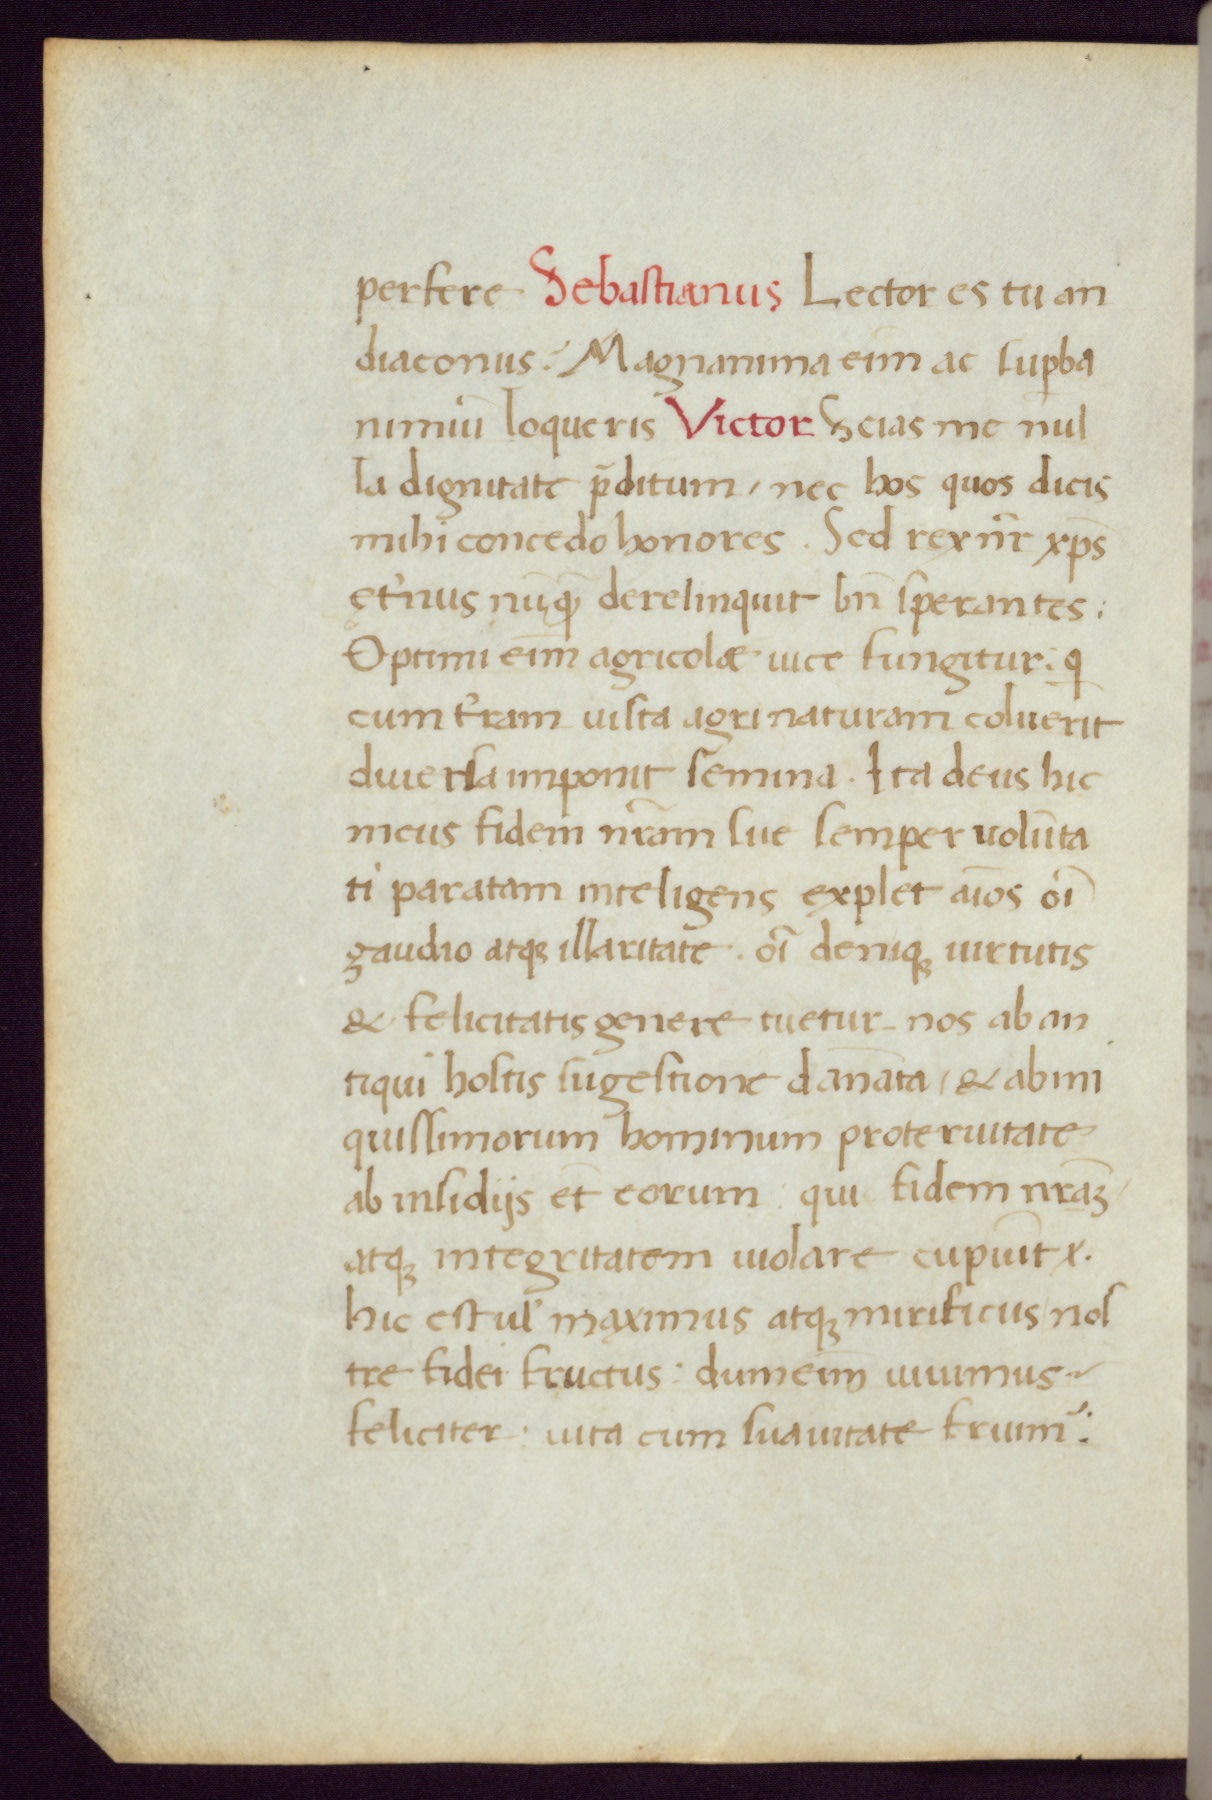 perfere Sebastianus Lector es tu an
diaconus? Magnanima eim̄ ac sup̱ba
nimiū loqueris Victor Scias me nul
la dignitate p̄ditum, nec hos quos dicis
mihi concedo honores. Sed rex nr̄ xp̄s
et'nus nūq̄ derelinquit bn̄ sperantes:
Optimi eim̄ agricolæ uice fungitur: q
cum t'ram uista agri naturam coluerit
diuersa imponit semina. Ita deus hic
meus fidem nr̄am sue semper volūta
ti paratam inteligens explet aīos oī
gaudio atqꝫ illaritate. oī deniqꝫ uirtutis
& felicitatis genere tuetur nos ab an
tiqui hostis sugestione dānata, & ab ini
quissimorum hominum proteruitate
ab insidijs et̄ eorum: qui fidem nr̄aꝫ
atqꝫ integritatem uiolare cupiūt x.
hic est ul' maximus atqꝫ mirificus nos
tre fidei fructus: dum eim̄ uiuimus
feliciter: uita cum suauitate fruim':